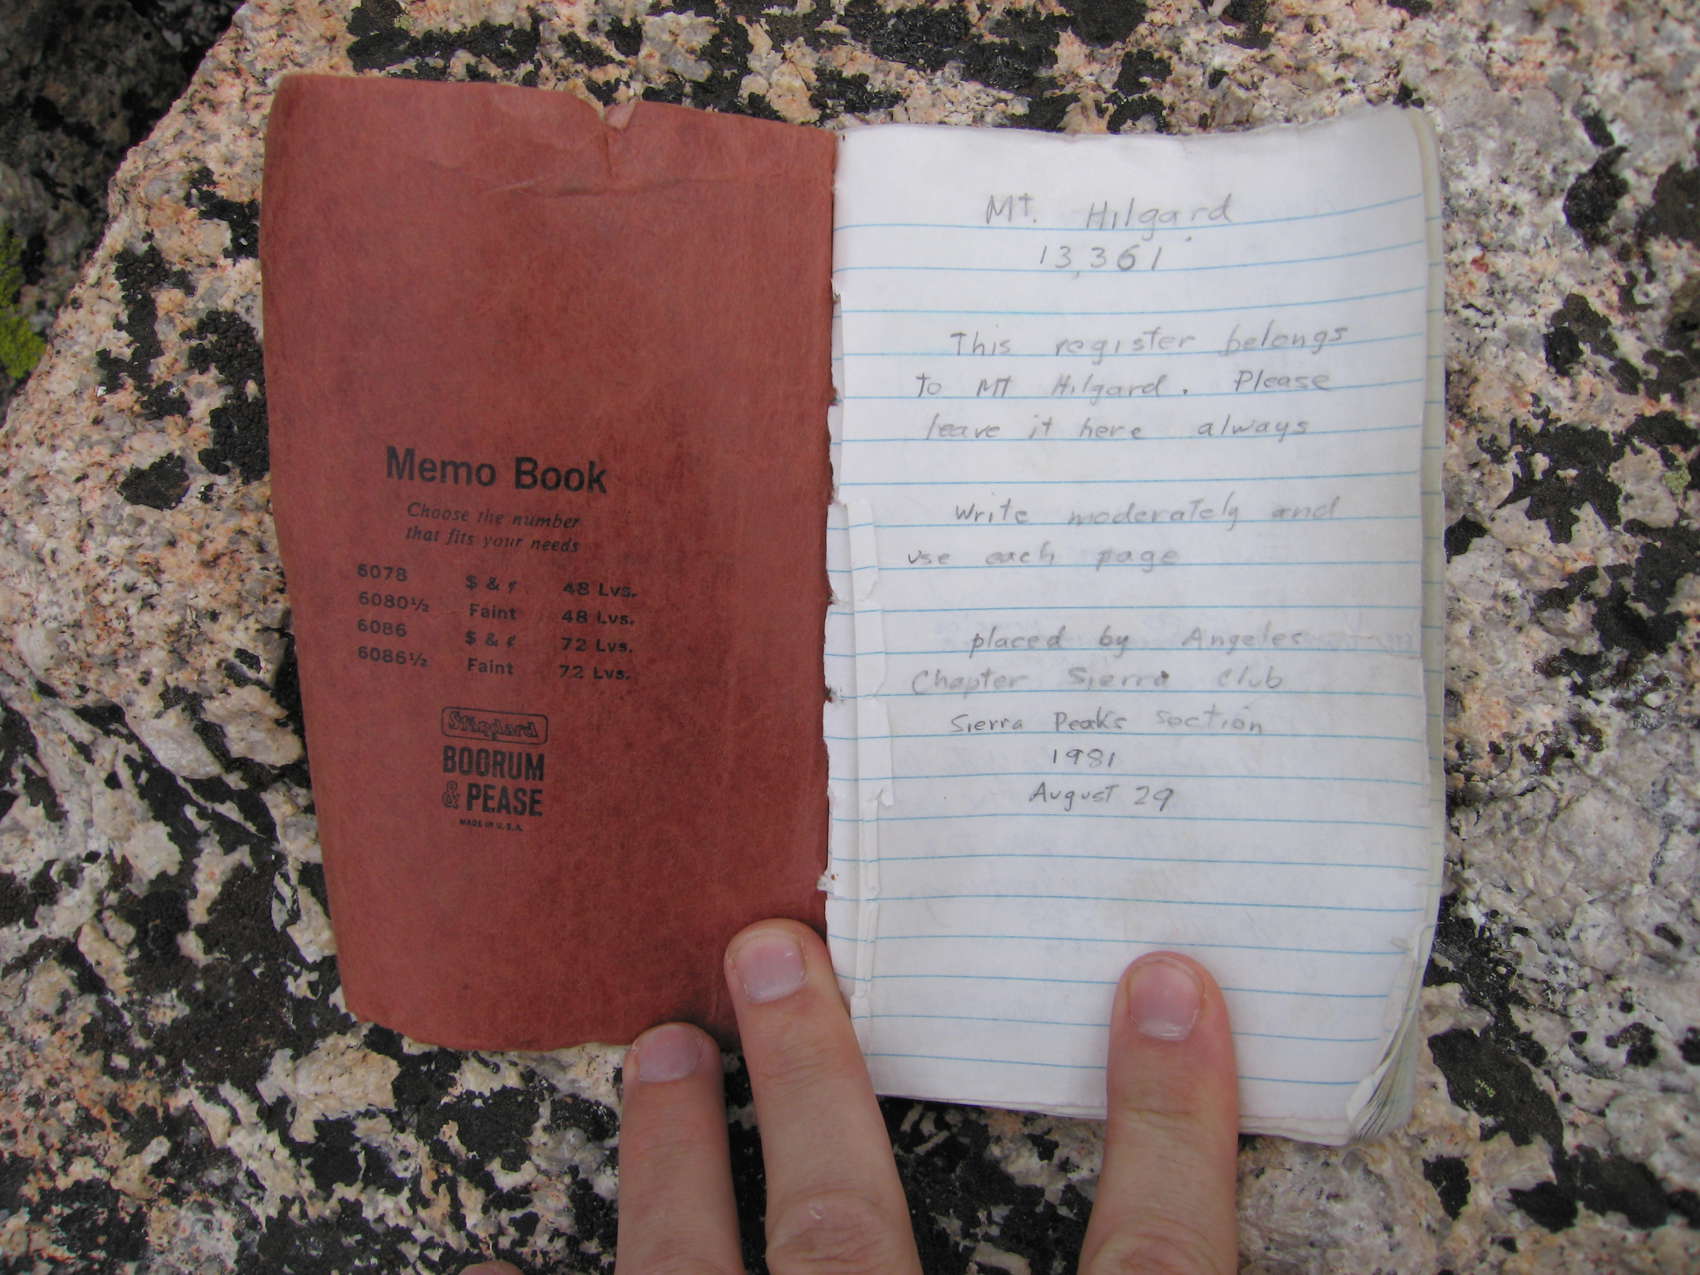 Memo Book
Choose the number
that fits your needs
6078 $ & ¢ 48 Lvs.
6080½ Faint 48 Lvs.
6086 $ & ¢ 72 Lvs.
6086½ Faint 72 Lvs.
Standard
BOORUM
& PEASE
MADE IN U.S.A.
Mt. Hilgard
13,361
This register belongs
to Mt Hilgard. Please
leave it here always
Write moderately and
use each page
placed by Angeles
Chapter Sierra Club
Sierra Peaks Section
1981
August 29